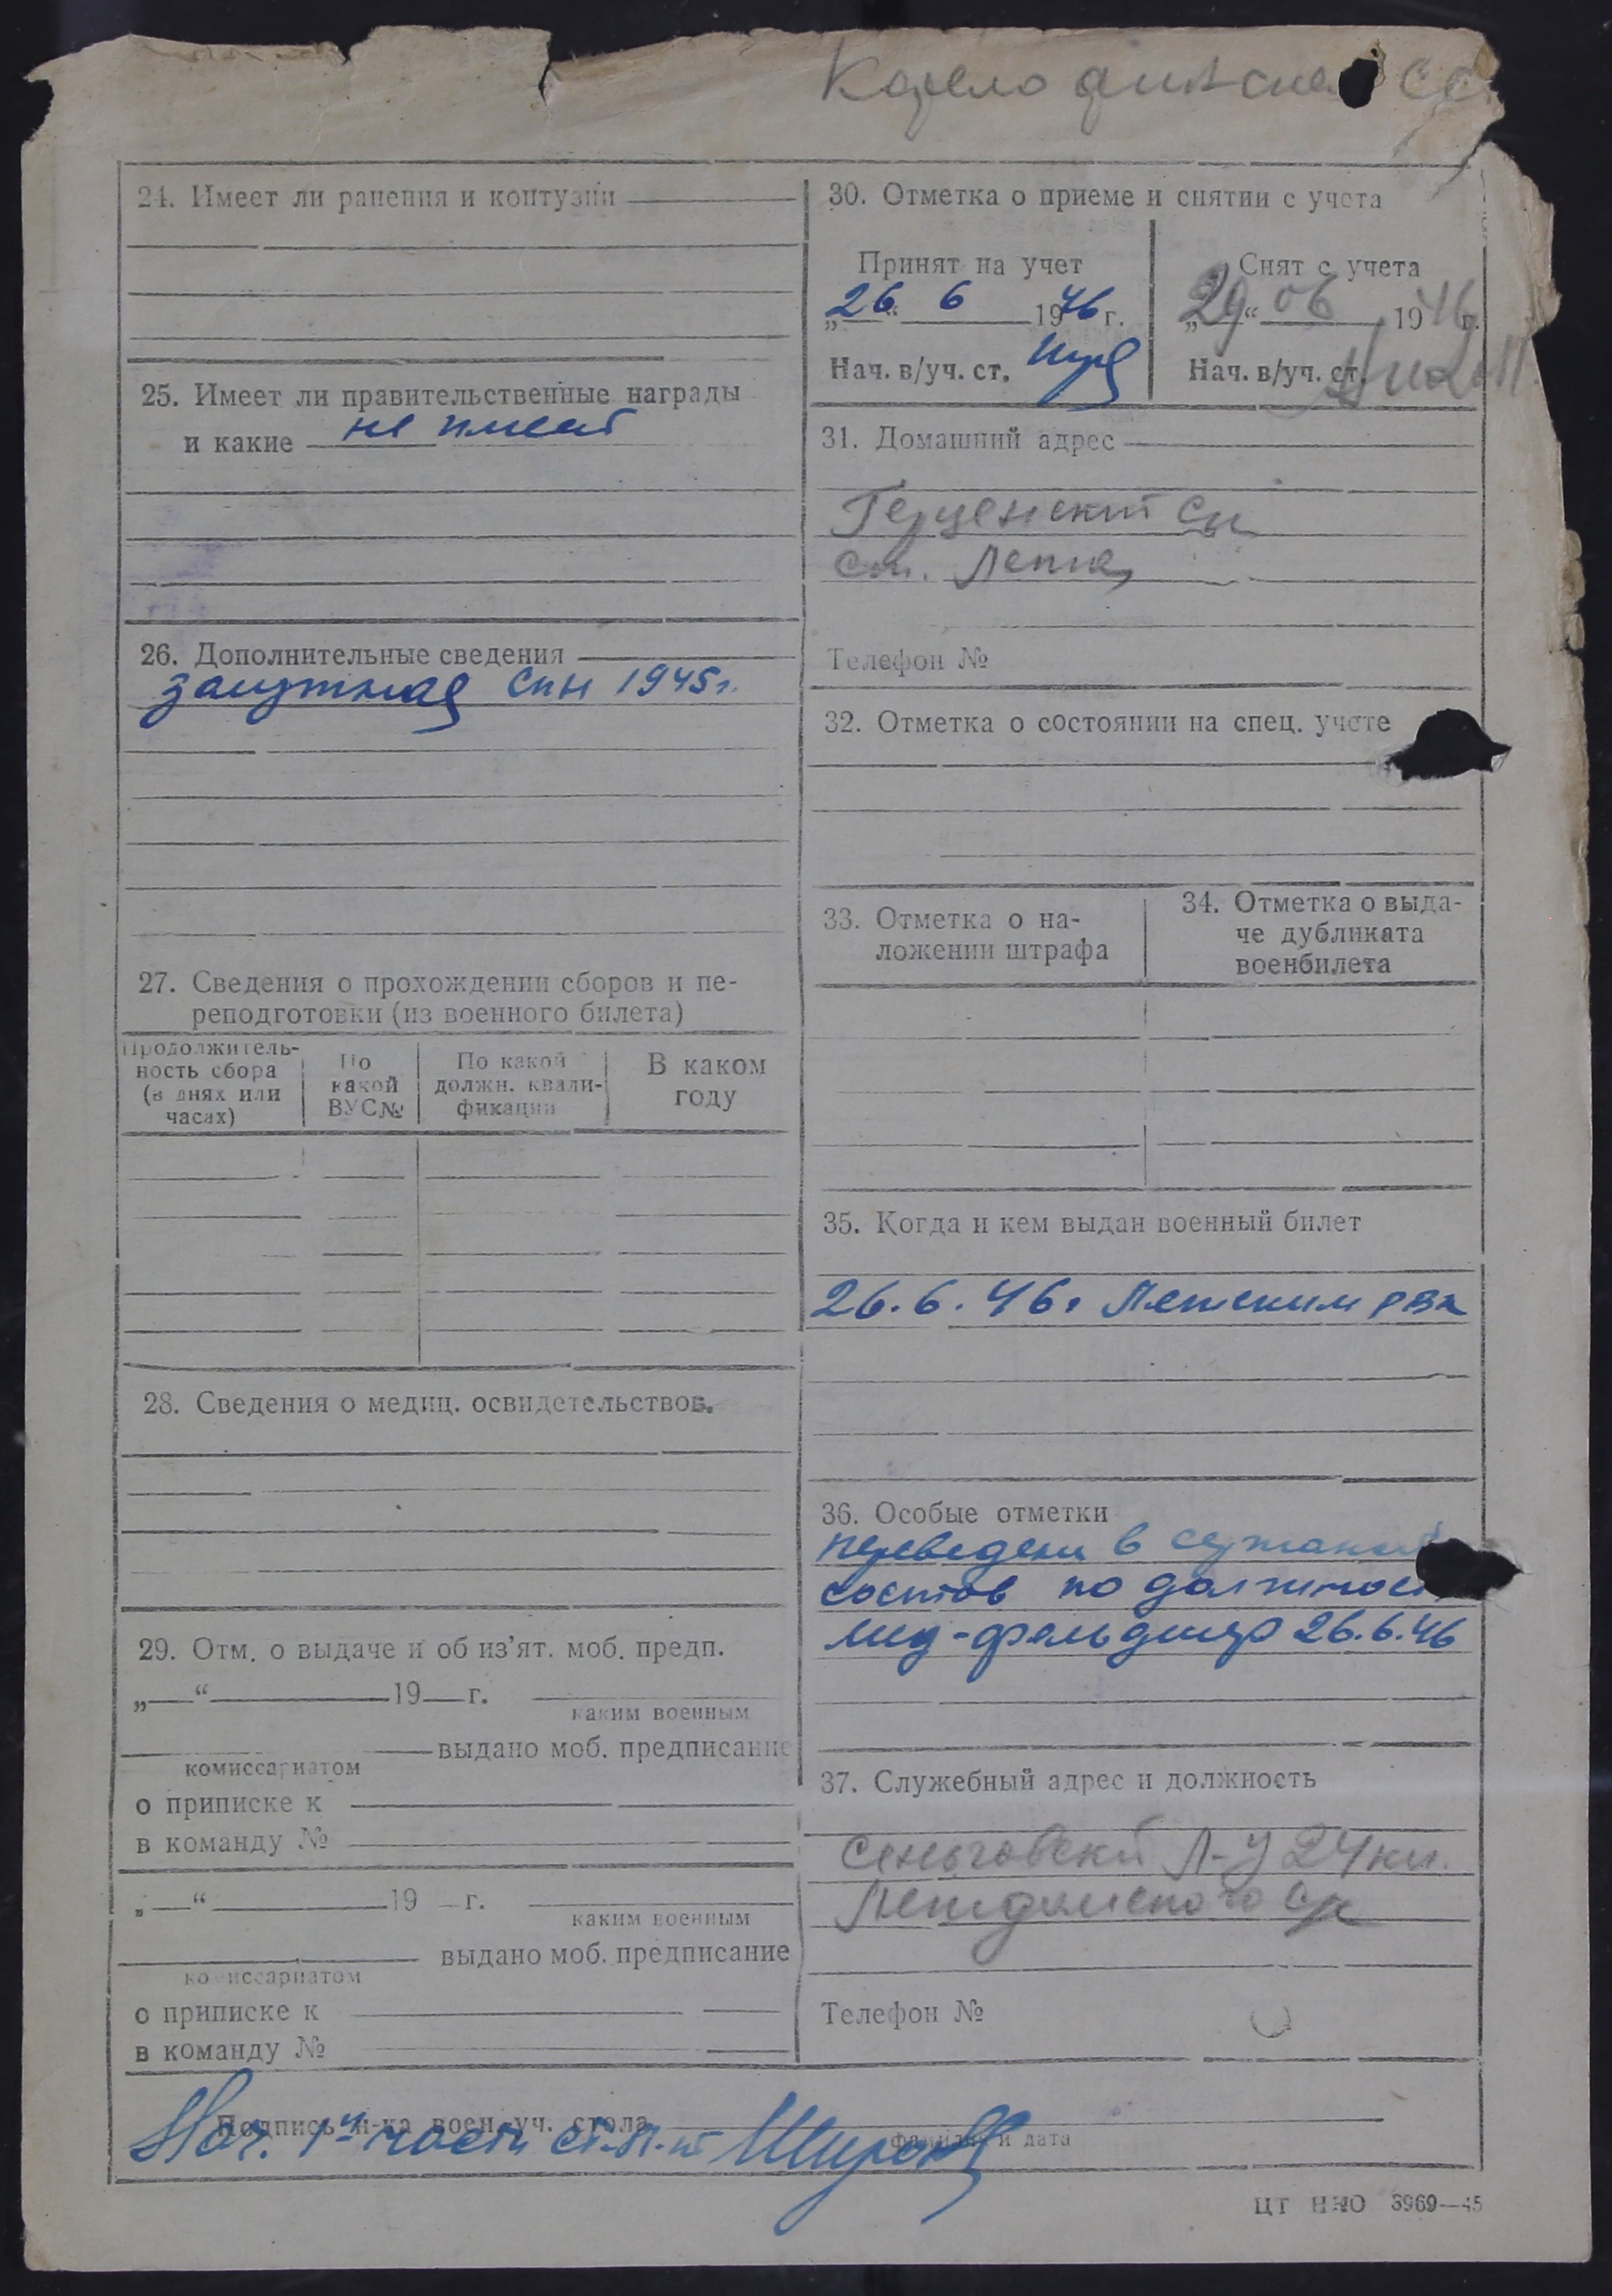 Карело финская СС
24. Имеет ли ранения и контузии
25. Имеет ли правительственные награды
и какие не имеет
26. Дополнительные сведения
замужная сын 1945г.
27. Сведения о прохождении сборов и пе-
реподготовки (из военного билета)
Продолжитель-
ность сбора
(в днях или
часах)
По
какой
ВУС№
По какой
должн. квали-
фикации
В каком
году
28. Сведения о медиц. освидетельствов.
29. Отм. о выдаче и об из'ят. моб. предп.
„ “ 19 г.
каким военным
выдано моб. предписание
комиссариатом
о приписке к
в команду №
„ “ 19 г.
каким военным
выдано моб. предписание
комиссариатом
о приписке к
в команду №
30. Отметка о приеме и снятии с учета
Принят на учет
„26“ 6 1946 г.
Нач. в/уч. ст.
Снят с учета
„29“ 06 1946 г.
Нач. в/уч. ст.
31. Домашний адрес
ст. Летка
Телефон №
32. Отметка о состоянии на спец. учете
33. Отметка о на-
ложении штрафа
34. Отметка о выда-
че дубликата
военбилета
35. Когда и кем выдан военный билет
26.6.46г Летским рвк
36. Особые отметки
переведена в сержанский
состав по должност
мед-фельдшер 26.6.46
37. Служебный адрес и должность
Л-у 24 км.
Телефон №
Подпись н-ка воен. уч. стола
Нач. 1й части ст. л-т Широков
фамилия и дата
ЦТ НКО 3969—45